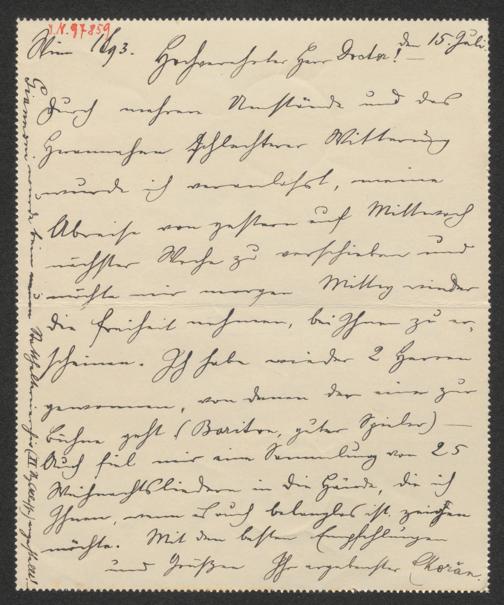 I.N. 97859
Wien 18/93. den 15. Juli
Hochverehrter Herr Doctor!
Durch mehrere Umstände und das
Herannahen schlechterer Witterung
wurde ich veranlaßt, meine
Abreise von gestern auf Mittwoch
nächster Woche zu verschieben und
möchte mir morgen Mittag wieder
die Freiheit nehmen, bei Ihnen zu er-
scheinen. Ich habe wieder 2 Herren
gewonnen, von denen der eine zur
Bühne geht (Bariton, guter Spieler) —
Auch fiel mir eine Sammlung von 25
Weihnachtsliedern in die Hände, die ich
Ihnen, wenn es auch belanglos ist, zeigen
möchte. Mit den besten Empfehlungen
und Grüßen Ihr ergebenster